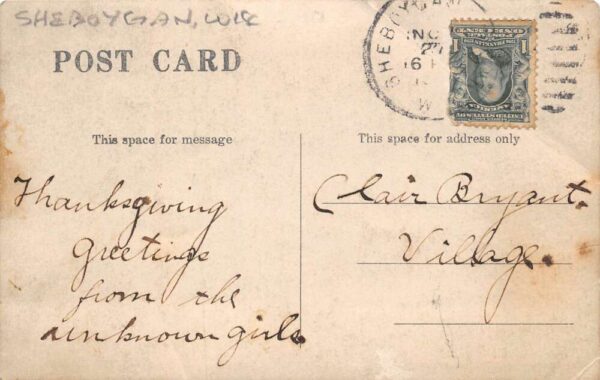 SHEBOYGAN, WIS
POST CARD
SHEBOYGAN
27
6
W
POSTAGE
ONE CENT
1 1
This space for message
This space for address only
Thanksgiving
greetings
from the
unknown girls.
Clair Bryant.
Village.